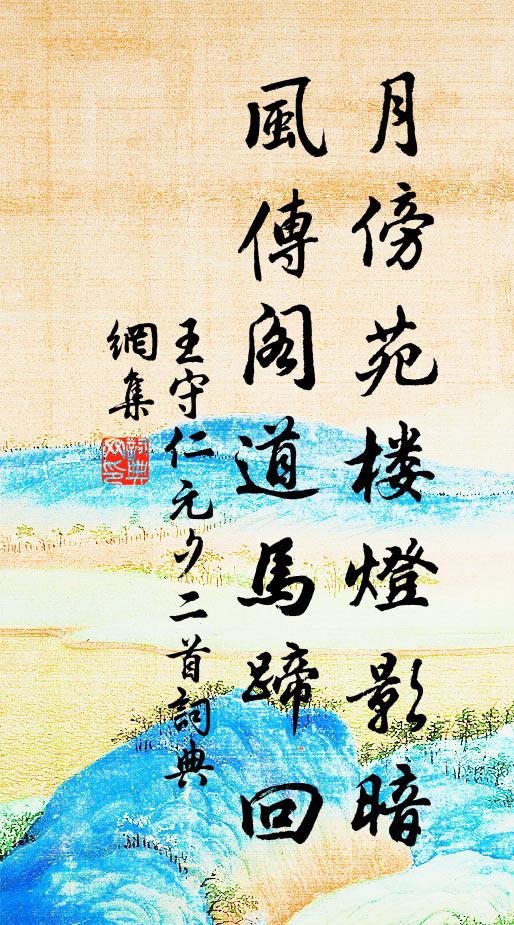 月傍苑楼燈影暗
風傳阁道馬蹄回
王守仁元夕二首詞典
網集